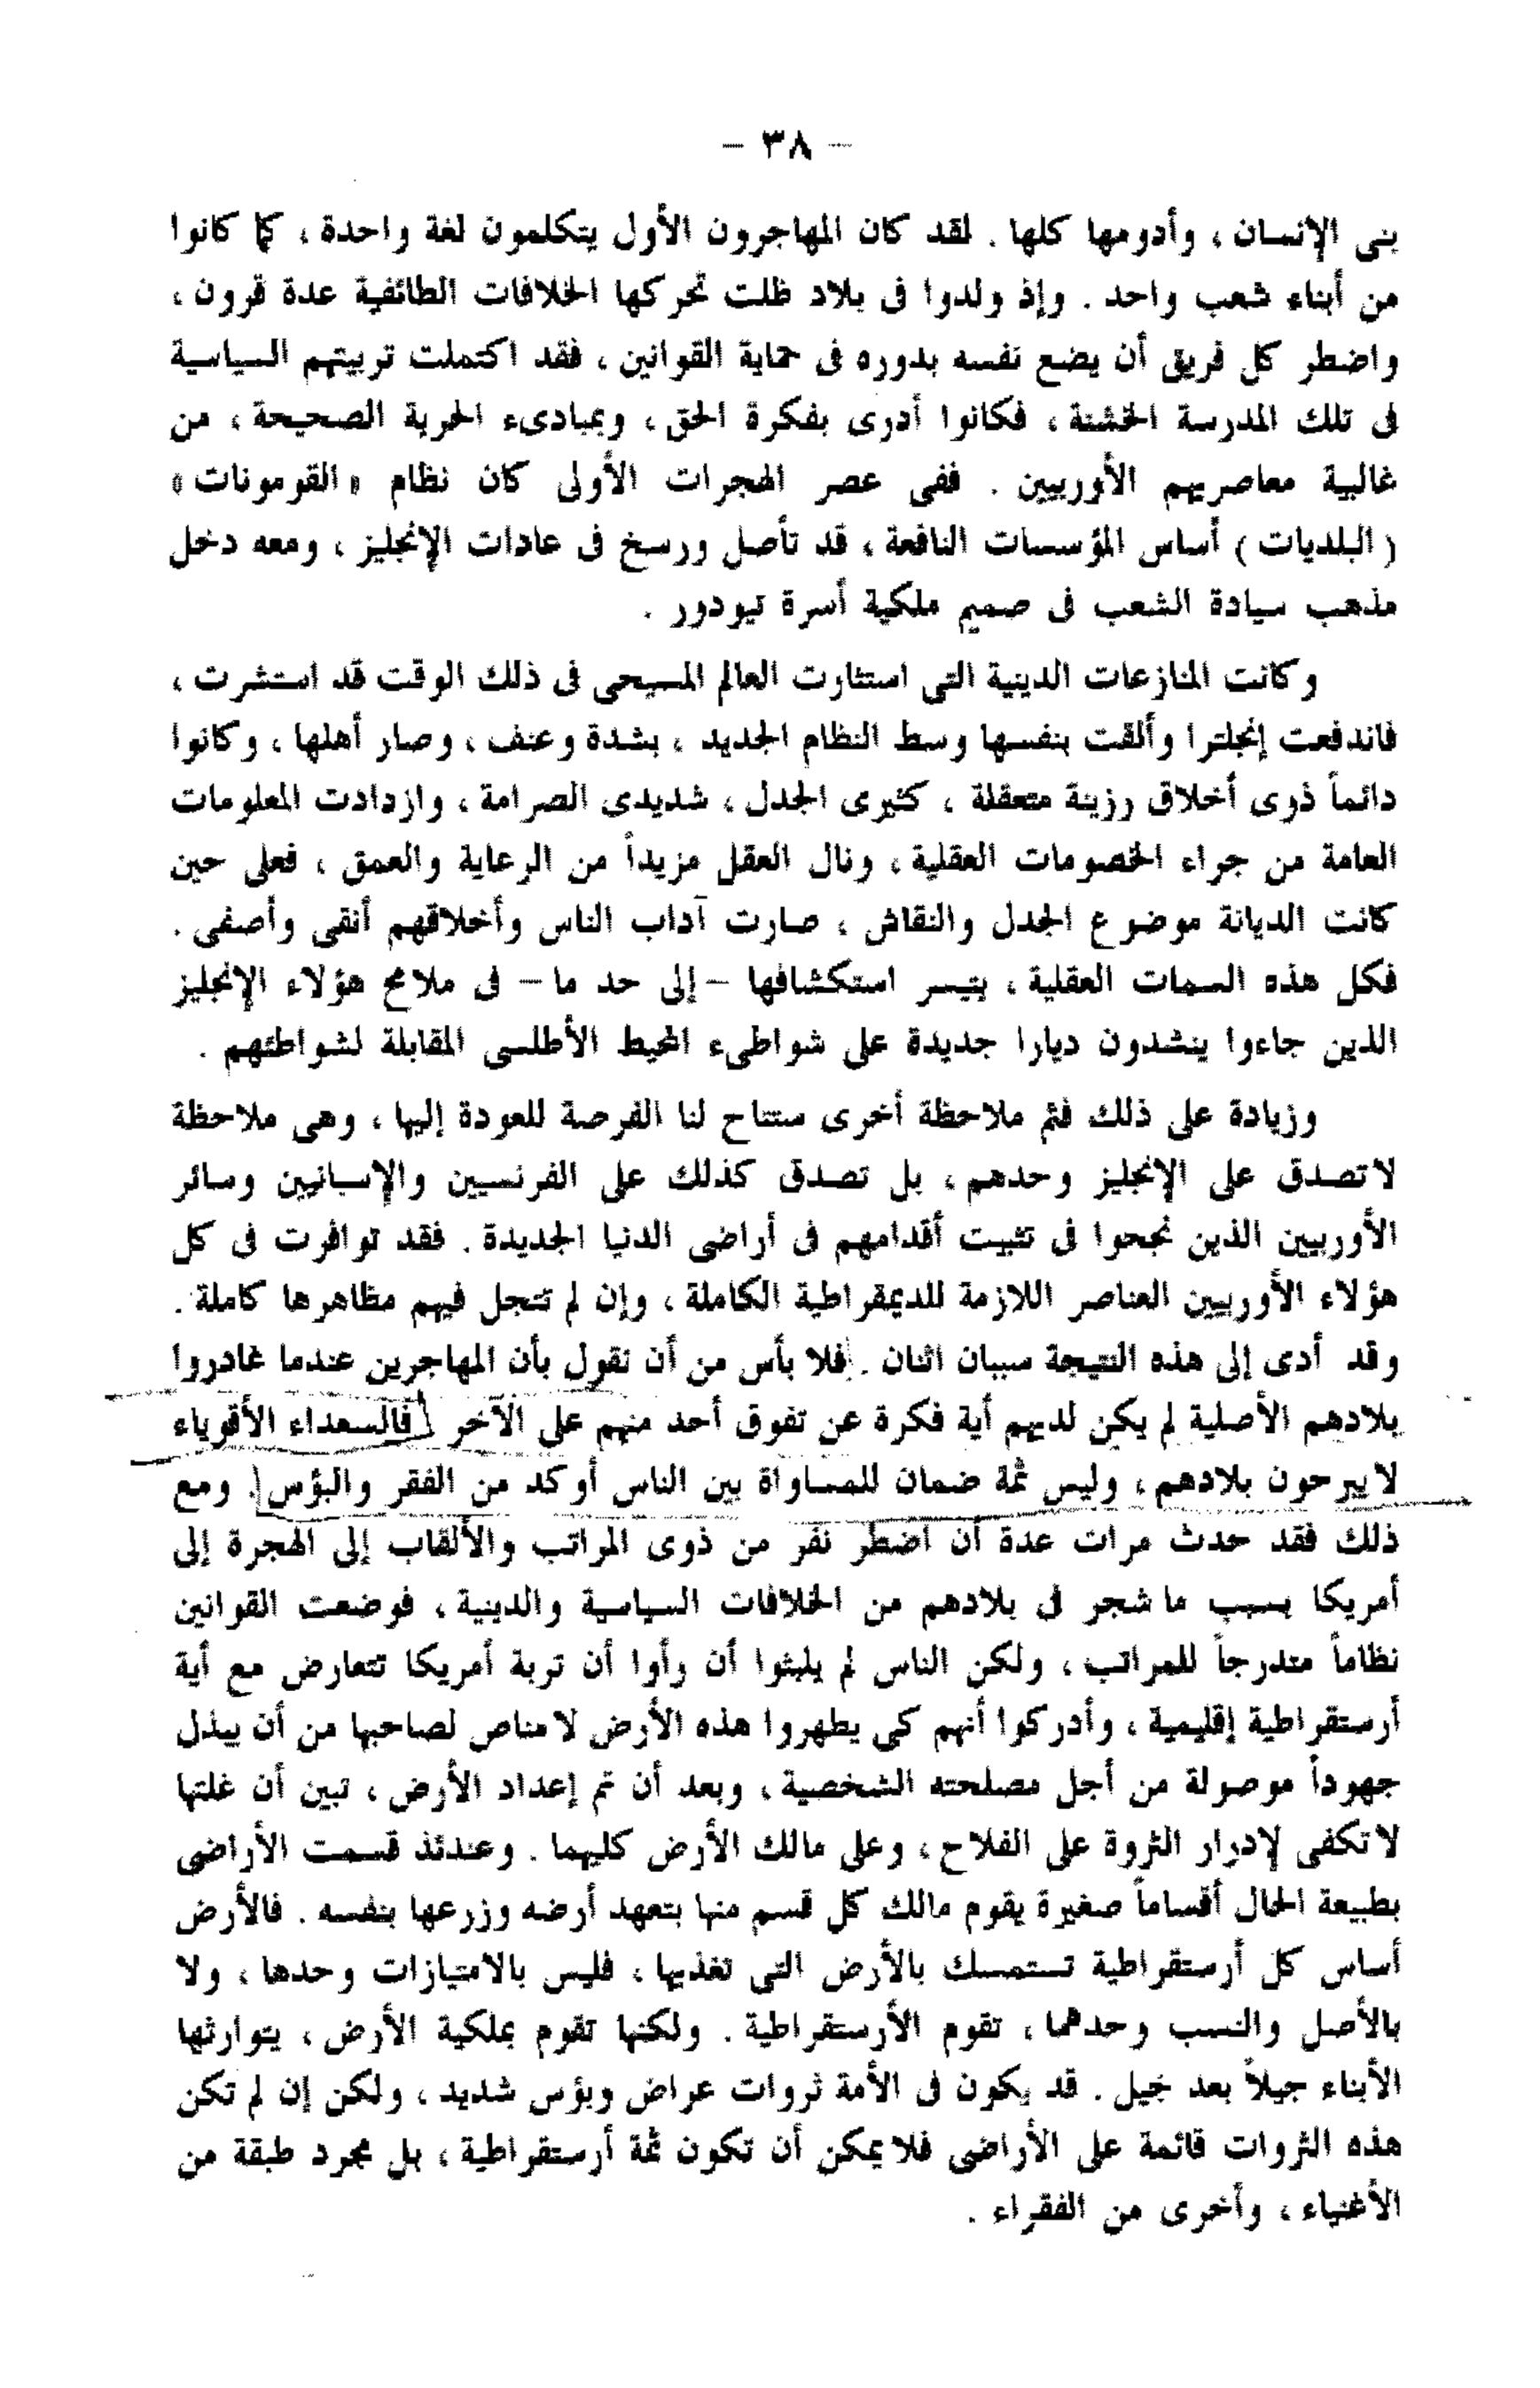 – ٣٨ –
بنى الإنسان ، وأدومها كلها . لقد كان المهاجرون الأول يتكلمون لغة واحدة ، كما كانوا
من أبناء شعب واحد . وإذ ولدوا فى بلاد ظلت تحركها الخلافات الطائفية عدة قرون ،
واضطر كل فريق أن يضع نفسه بدوره فى حماية القوانين ، فقد اكتملت تربيتهم السياسية
فى تلك المدرسة الخشنة ، فكانوا أدرى بفكرة الحق ، وبمبادىء الحرية الصحيحة ، من
غالبية معاصريهم الأوربيين . ففى عصر الهجرات الأولى كان نظام « القومونات »
( البلديات ) أساس المؤسسات النافعة ، قد تأصل ورسخ فى عادات الإنجليز ، ومعه دخل
مذهب سيادة الشعب فى صميم ملكية أسرة تيودور .
وكانت المنازعات الدينية التى استثارت العالم المسيحى فى ذلك الوقت قد استشرت ،
فاندفعت إنجلترا وألقت بنفسها وسط النظام الجديد ، بشدة وعنف ، وصار أهلها ، وكانوا
دائماً ذوى أخلاق رزينة متعقلة ، كثيرى الجدل ، شديدى الصرامة ، وازدادت المعلومات
العامة من جراء الخصومات العقلية ، ونال العقل مزيداً من الرعاية والعمق ، فعلى حين
كانت الديانة موضوع الجدل والنقاش ، صارت آداب الناس وأخلاقهم أنقى وأصفى .
فكل هذه السمات العقلية ، يتيسر استكشافها – إلى حد ما – فى ملامح هؤلاء الإنجليز
الذين جاءوا ينشدون ديارا جديدة على شواطىء المحيط الأطلسى المقابلة لشواطئهم .
وزيادة على ذلك فثم ملاحظة أخرى ستتاح لنا الفرصة للعودة إليها ، وهى ملاحظة
لا تصدق على الإنجليز وحدهم ، بل تصدق كذلك على الفرنسيين والإسبانيين وسائر
الأوربيين الذين نجحوا فى تثبيت أقدامهم فى أراضى الدنيا الجديدة . فقد توافرت فى كل
هؤلاء الأوربيين العناصر اللازمة للديمقراطية الكاملة ، وإن لم تتجل فيهم مظاهرها كاملة .
وقد أدى إلى هذه النتيجة سببان اثنان . فلا بأس من أن نقول بأن المهاجرين عندما غادروا
بلادهم الأصلية لم يكن لديهم أية فكرة عن تفوق أحد منهم على الآخر ( فالسعداء الأقوياء
لا يبرحون بلادهم ، وليس ثمة ضمان للمساواة بين الناس أوكد من الفقر والبؤس ) . ومع
ذلك فقد حدث مرات عدة أن اضطر نفر من ذوى المراتب والألقاب إلى الهجرة إلى
أمريكا بسبب ما شجر فى بلادهم من الخلافات السياسية والدينية ، فوضعت القوانين
نظاماً متدرجاً للمراتب ، ولكن الناس لم يلبثوا أن رأوا أن تربة أمريكا تتعارض مع أية
أرستقراطية إقليمية ، وأدركوا أنهم كى يطهروا هذه الأرض لا مناص لصاحبها من أن يبذل
جهوداً موصولة من أجل مصلحته الشخصية ، وبعد أن تم إعداد الأرض ، تبين أن غلتها
لا تكفى لإدرار الثروة على الفلاح ، وعلى مالك الأرض كليهما . وعندئذ قسمت الأراضى
بطبيعة الحال أقساماً صغيرة يقوم مالك كل قسم منها بتعهد أرضه وزرعها بنفسه . فالأرض
أساس كل أرستقراطية تستمسك بالأرض التى تغذيها ، فليس بالامتيازات وحدها ، ولا
بالأصل والنسب وحدهما ، تقوم الأرستقراطية . ولكنها تقوم بملكية الأرض ، يتوارثها
الأبناء جيلاً بعد جيل . قد يكون فى الأمة ثروات عراض وبؤس شديد ، ولكن إن لم تكن
هذه الثروات قائمة على الأراضى فلا يمكن أن تكون ثمة أرستقراطية ، بل مجرد طبقة من
الأغنياء ، وأخرى من الفقراء .